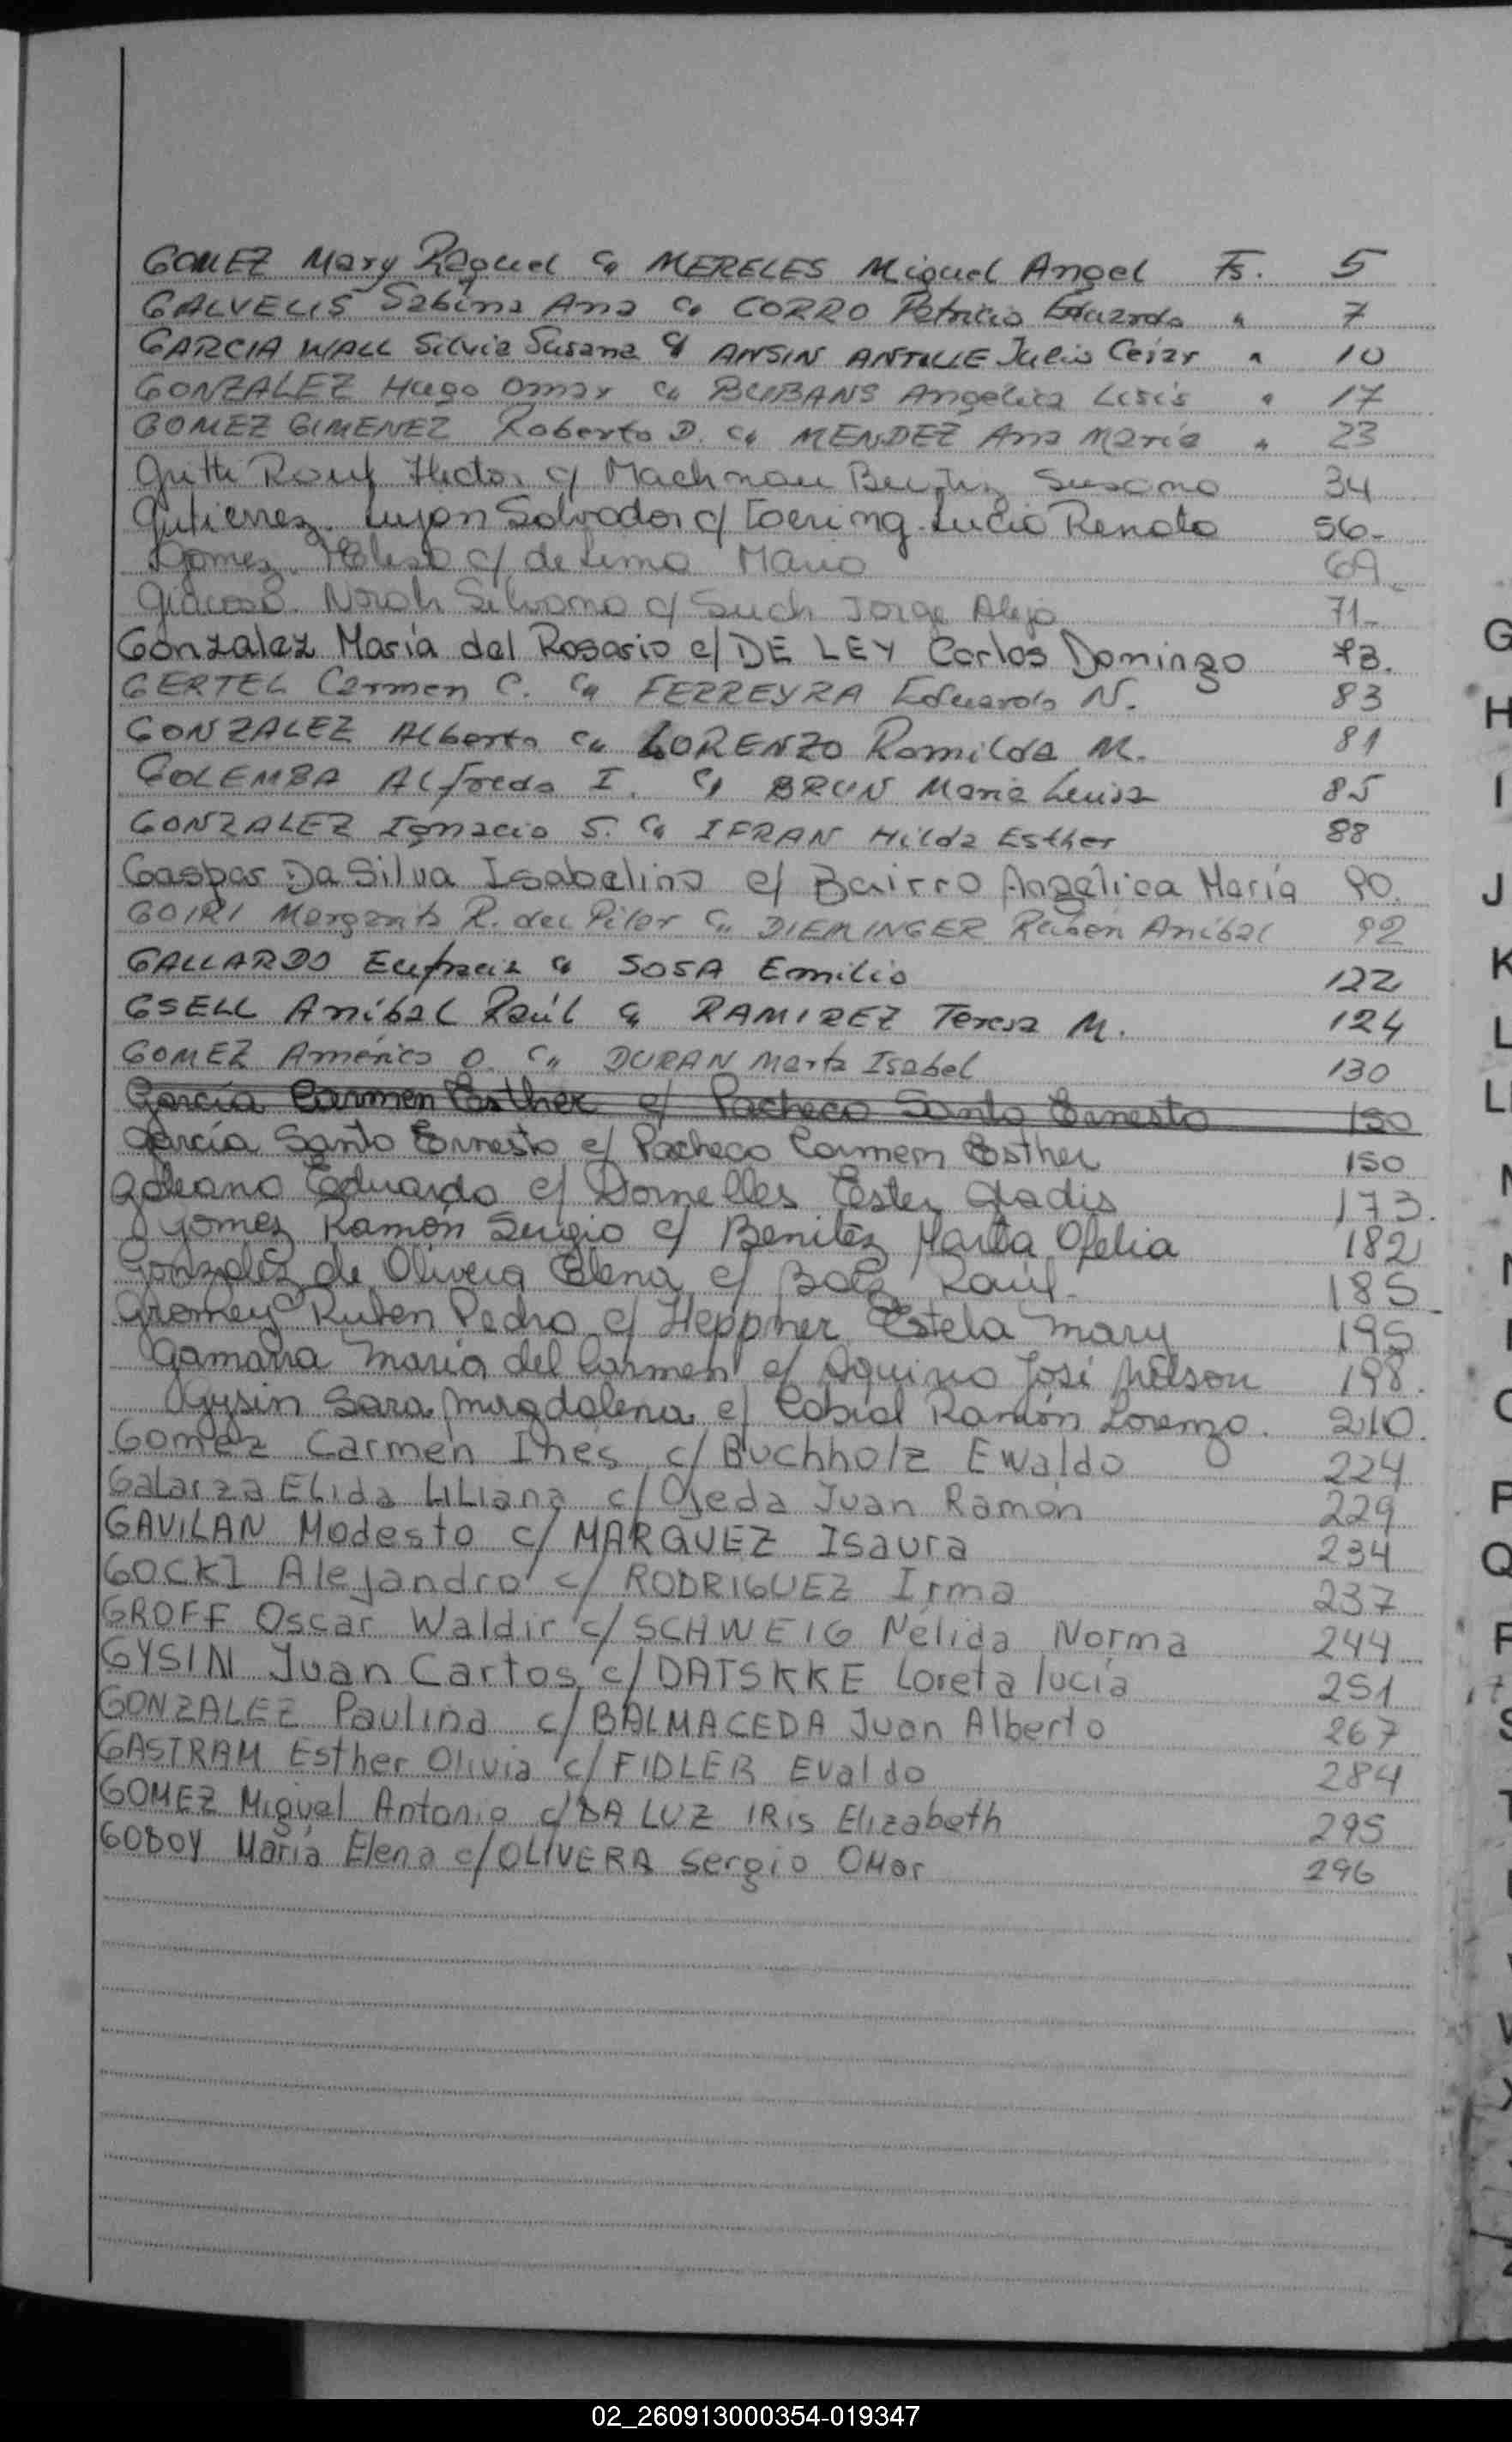 GOMEZ Mary Raquel c/ MERELES Miguel Angel Fs. 5
GALVELIS Sabina Ana c/ CORRO Patricio Eduardo " 7
GARCIA WALL Silvia Susana c/ ANSIN ANTILLE Julio Cesar " 10
GONZALEZ Hugo Omar c/ BUBANS Angélica Lisis " 17
GOMEZ GIMENEZ Roberto D. c/ MENDEZ Ana María " 23
Hector c/ Susana 34
Gutierrez Lujan Salvador c/ Lucio Renato 56-
Gomez c/ de Lima Mario 69
Giacoso Norah Silvana c/ Such Jorge Alejo 71-
Gonzalez María del Rosario c/ DE LEY Carlos Domingo 73.
GERTEL Carmen C. c/ FERREYRA Eduardo N. 83
GONZALEZ Alberto c/ LORENZO Romilda M. 81
GOLEMBA Alfredo I. c/ BRUN Maria Luisa 85
GONZALEZ Ignacio S. c/ IFRAN Hilda Esther 88
Gaspar Da Silva Isabelino c/ Bairro Angélica María 90.
GOIRI Margarita R. del Pilar c/ DIEMINGER Rubén Aníbal 92
GALLARDO c/ SOSA Emilio 122
GSELL Aníbal Raúl c/ RAMIREZ Teresa M. 124
GOMEZ Américo O. c/ DURAN Marta Isabel 130
García Carmen Esther c/ Pacheco Santo Ernesto 150
García Santo Ernesto c/ Pacheco Carmen Esther 150
Galeano Eduardo c/ Dornelles Ester Gladis 173.
Gomez Ramón Sergio c/ Benitez Marta Ofelia 182
Gonzalez de Olivera Elena c/ Raúl 185
Ruben Pedro c/ Heppner Estela Mary 195
Gamarra María del Carmen c/ Aquino José Nelson 198.
Gysin Sara Magdalena c/ Cabral Ramón Lorenzo. 210.
Gomez Carmen Inés c/ Buchholz Ewaldo 224
Galarza Elida Liliana c/ Ojeda Juan Ramón 229
GAVILAN Modesto c/ MARQUEZ Isaura 234
GOCKI Alejandro c/ RODRIGUEZ Irma 237
GROFF Oscar Waldir c/ SCHWEIG Nélida Norma 244
GYSIN Juan Carlos c/ DATSKKE Loreta lucía 251
GONZALEZ Paulina c/ BALMACEDA Juan Alberto 267
GASTRAM Esther Olivia c/ FIDLER Evaldo 284
GOMEZ Miguel Antonio c/ DA LUZ IRis Elizabeth 295
GODOY María Elena c/ OLIVERA Sergio OMar 296
G
H
I
J
K
L
02_260913000354-019347